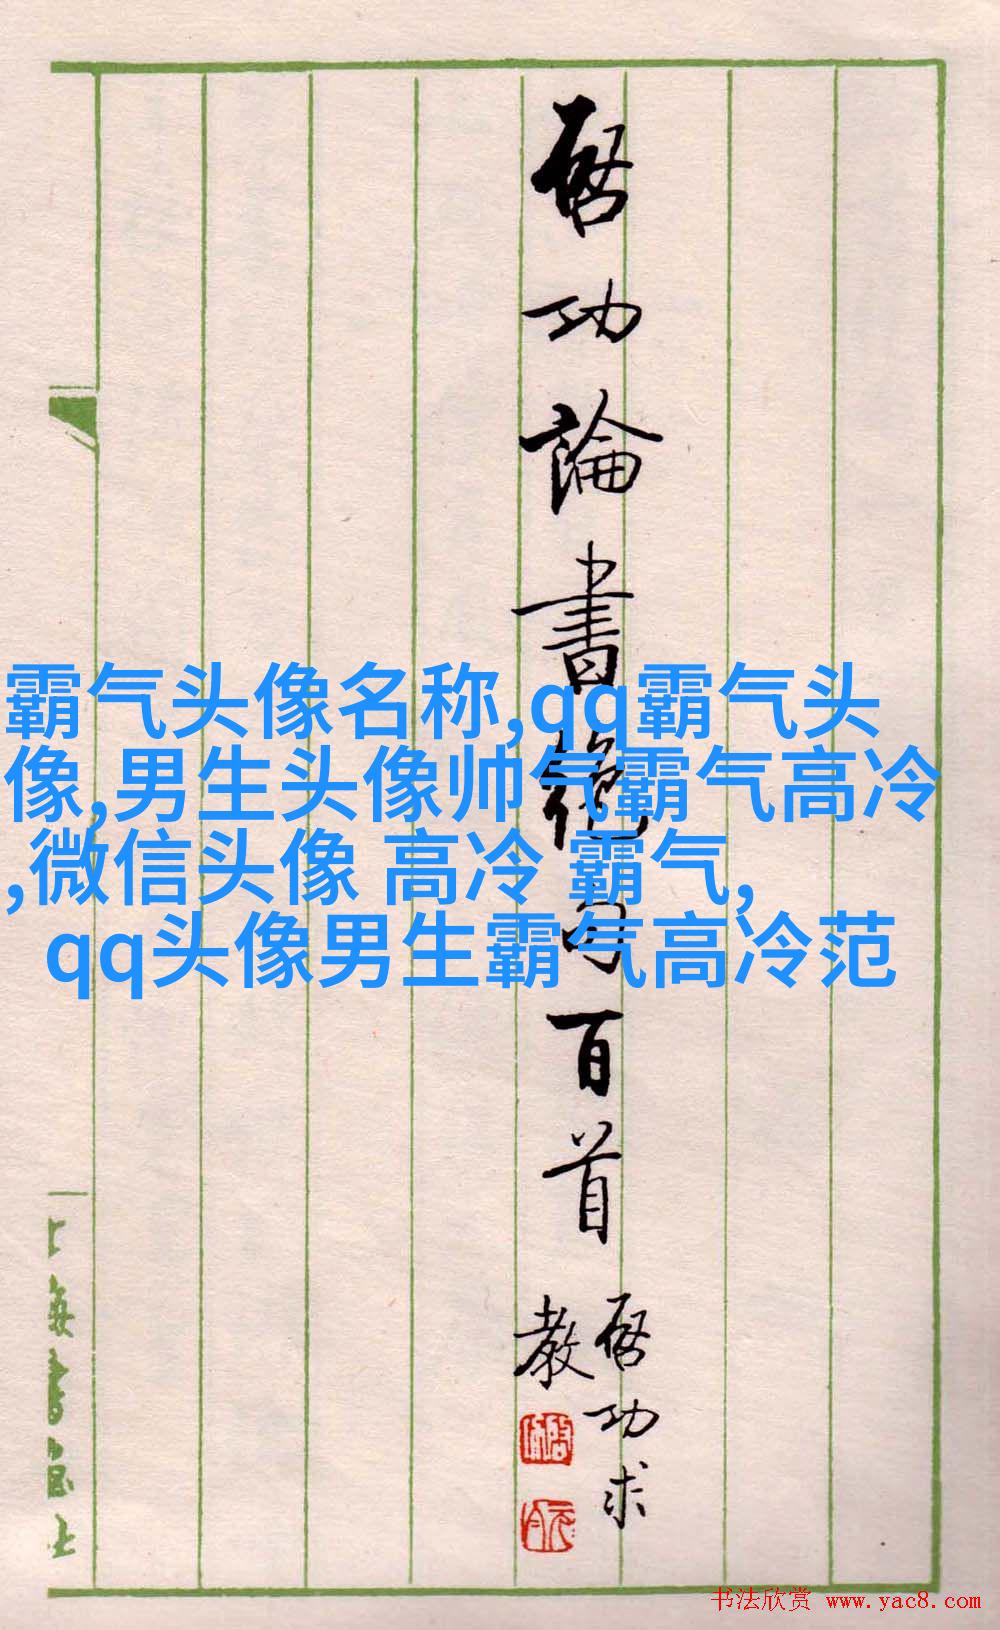 啓功論書絕句百首
啓功求
教
霸气头像名称,qq霸气头
像,男生头像帅气霸气高冷
,微信头像 高冷 霸气,
qq头像男生霸气高冷范
上海書畫社
书法欣赏 www.yac8.com